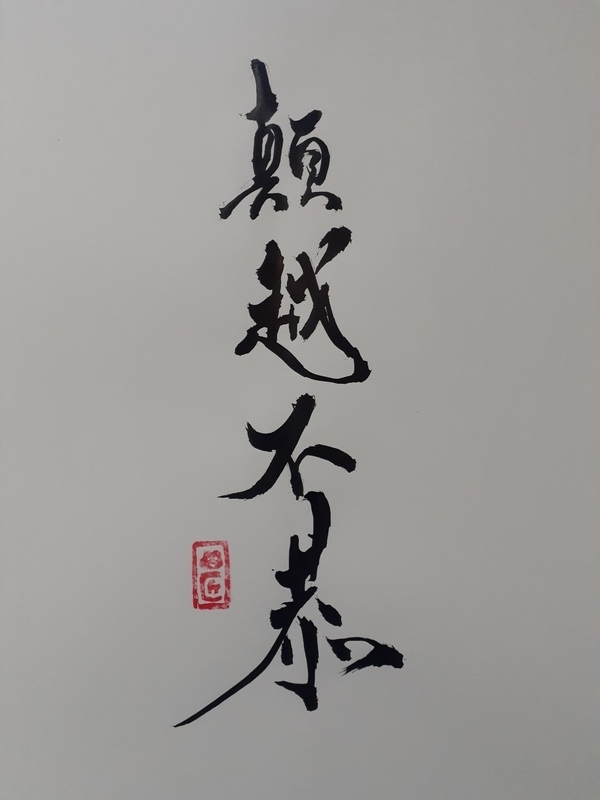 顛越不恭
匠